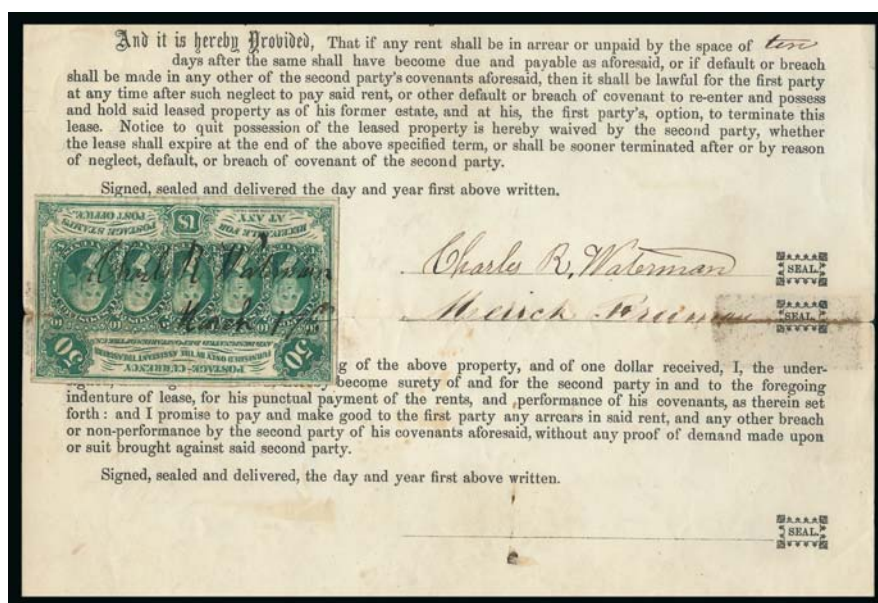 And it is hereby Provided, That if any rent shall be in arrear or unpaid by the space of ten
days after the same shall have become due and payable as aforesaid, or if default or breach
shall be made in any other of the second party's covenants aforesaid, then it shall be lawful for the first party
at any time after such neglect to pay said rent, or other default or breach of covenant to re-enter and possess
and hold said leased property as of his former estate, and at his, the first party's, option, to terminate this
lease. Notice to quit possession of the leased property is hereby waived by the second party, whether
the lease shall expire at the end of the above specified term, or shall be sooner terminated after or by reason
of neglect, default, or breach of covenant of the second party.
Signed, sealed and delivered the day and year first above written.
POSTAGE STAMPS
POST OFFICE.
RECEIVABLE FOR
AT ANY
US
Charles R Waterman
March 1
50
50
FURNISHED ONLY BY THE ASSISTANT TREASURERS
POSTAGE CURRENCY
Charles R. Waterman
SEAL.
Merick Freeman
SEAL.
g of the above property, and of one dollar received, I, the under-
become surety of and for the second party in and to the foregoing
indenture of lease, for his punctual payment of the rents, and performance of his covenants, as therein set
forth: and I promise to pay and make good to the first party any arrears in said rent, and any other breach
or non-performance by the second party of his covenants aforesaid, without any proof of demand made upon
or suit brought against said second party.
Signed, sealed and delivered, the day and year first above written.
SEAL.